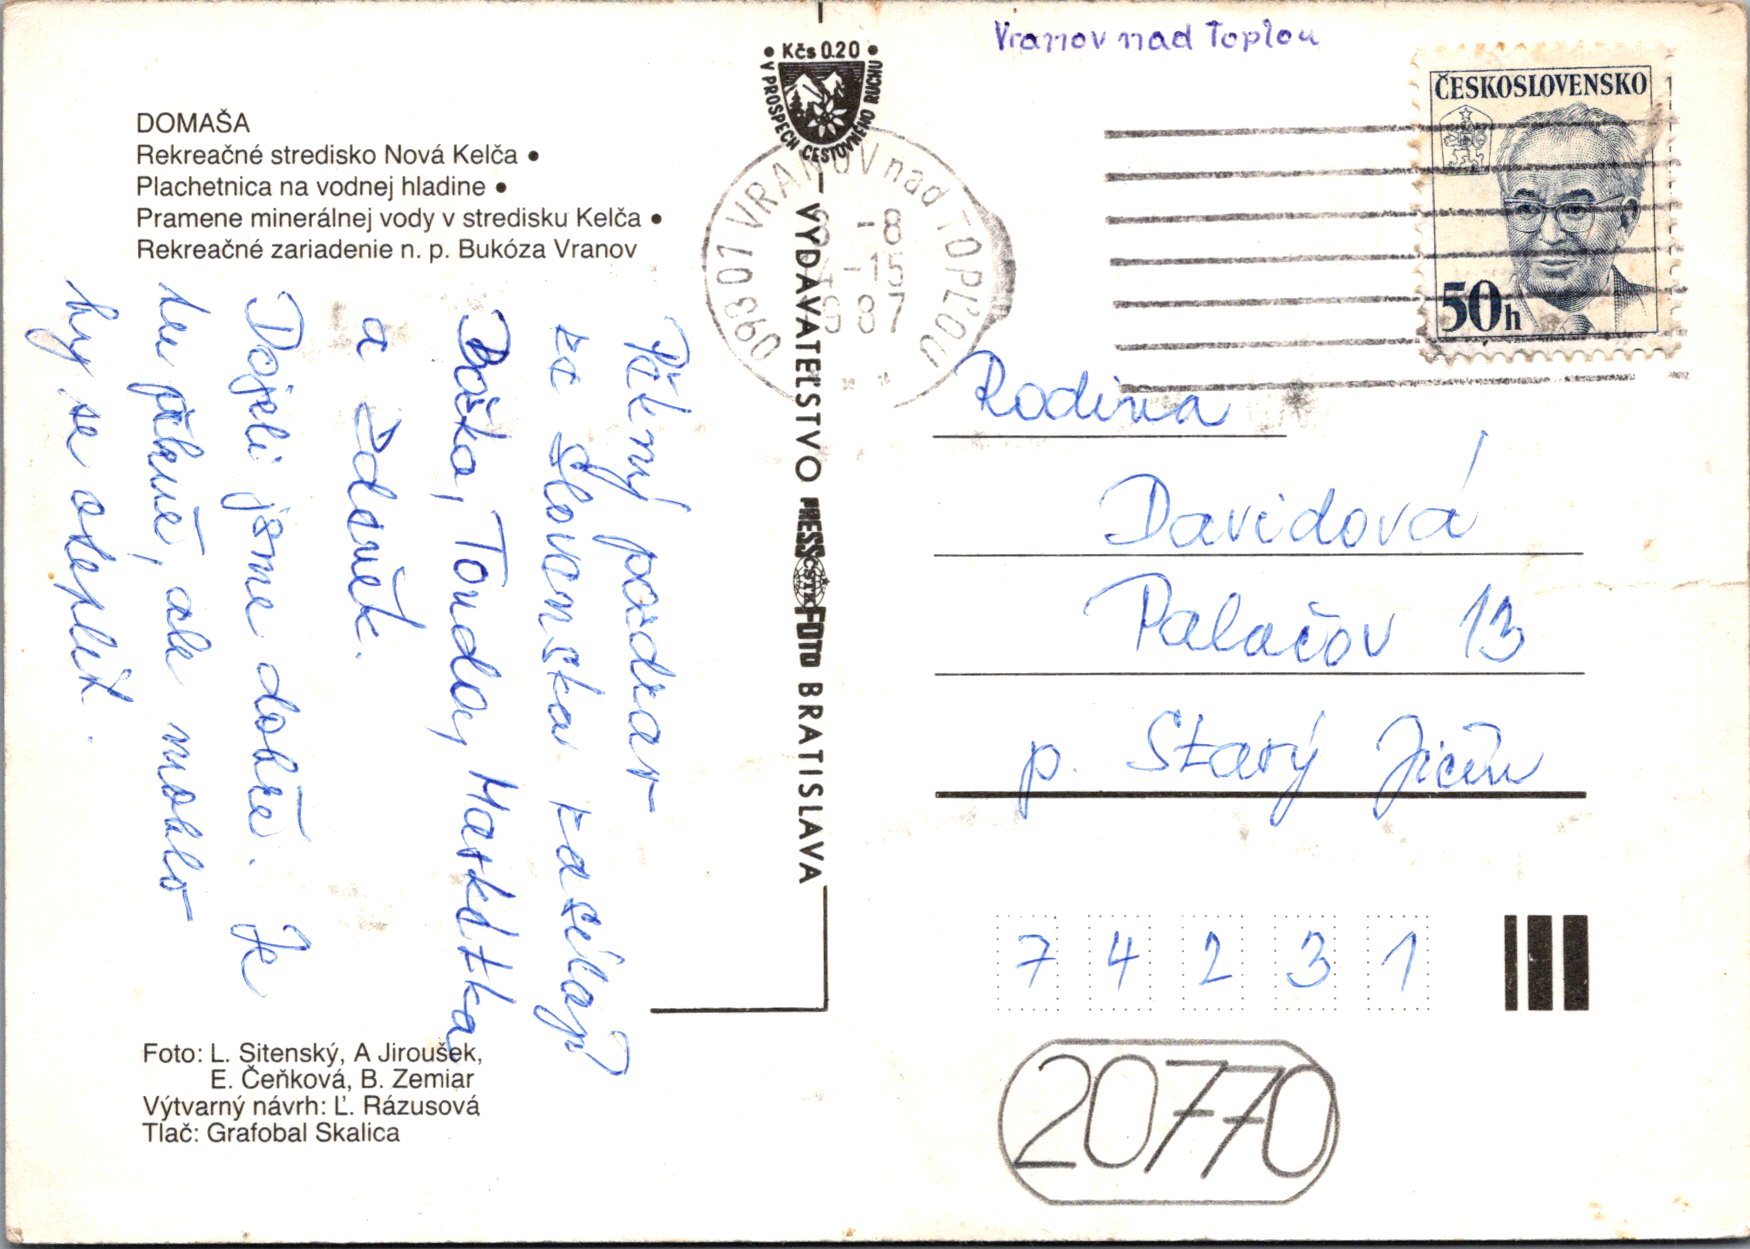 Vranov nad Toplou
DOMAŠA
Rekreačné stredisko Nová Kelča •
Plachetnica na vodnej hladine •
Pramene minerálnej vody v stredisku Kelča •
Rekreačné zariadenie n. p. Bukóza Vranov
• Kčs 0.20 •
V PROSPECH CESTOVNÉHO RUCHU
093 01 VRANOV nad TOPĽOU
-8
-15
87
ČESKOSLOVENSKO
50h
Pěkný pozdrav
ze Slovenska zasílají
Božka, Tonda, Markétka
a Zdeněk.
Dojeli jsme dobře. Je
tu pěkně, ale mohlo
by se oteplit.
VYDAVATEĽSTVO PRESSFOTO BRATISLAVA
ČSTK
Rodina
Davidová
Palačov 13
p. Starý Jičín
7 4 2 3 1
20770
Foto: L. Sitenský, A Jiroušek,
E. Čeňková, B. Zemiar
Výtvarný návrh: Ľ. Rázusová
Tlač: Grafobal Skalica